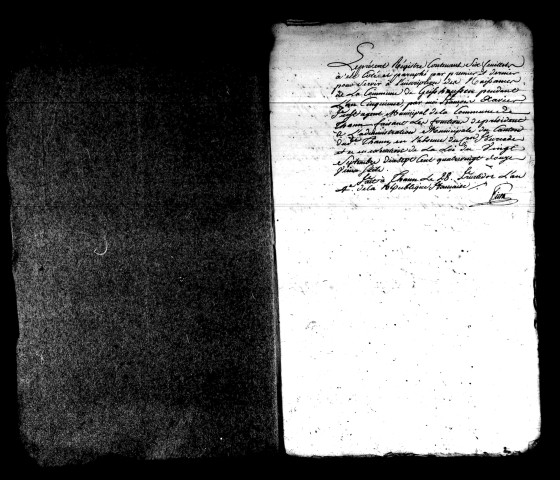 Le présent Registre Contenant Six feuillets
a été Coté et paraphé par premier et dernier
pour servir à l'inscription des Naissances
de la Commune de pendant
L'an Cinquième par moi Xavier
agent Municipal de la Commune de
Thann faisant les fonctions de président
à L'administration Municipale du Canton
dud. Thann en l'absence du
et en exécution de la Loi du Vingt
Septembre dix sept Cent quatre vingt douze
Vieux Stile.
Fait à Thann Le 28. fructidor L'an
4e. de la République française